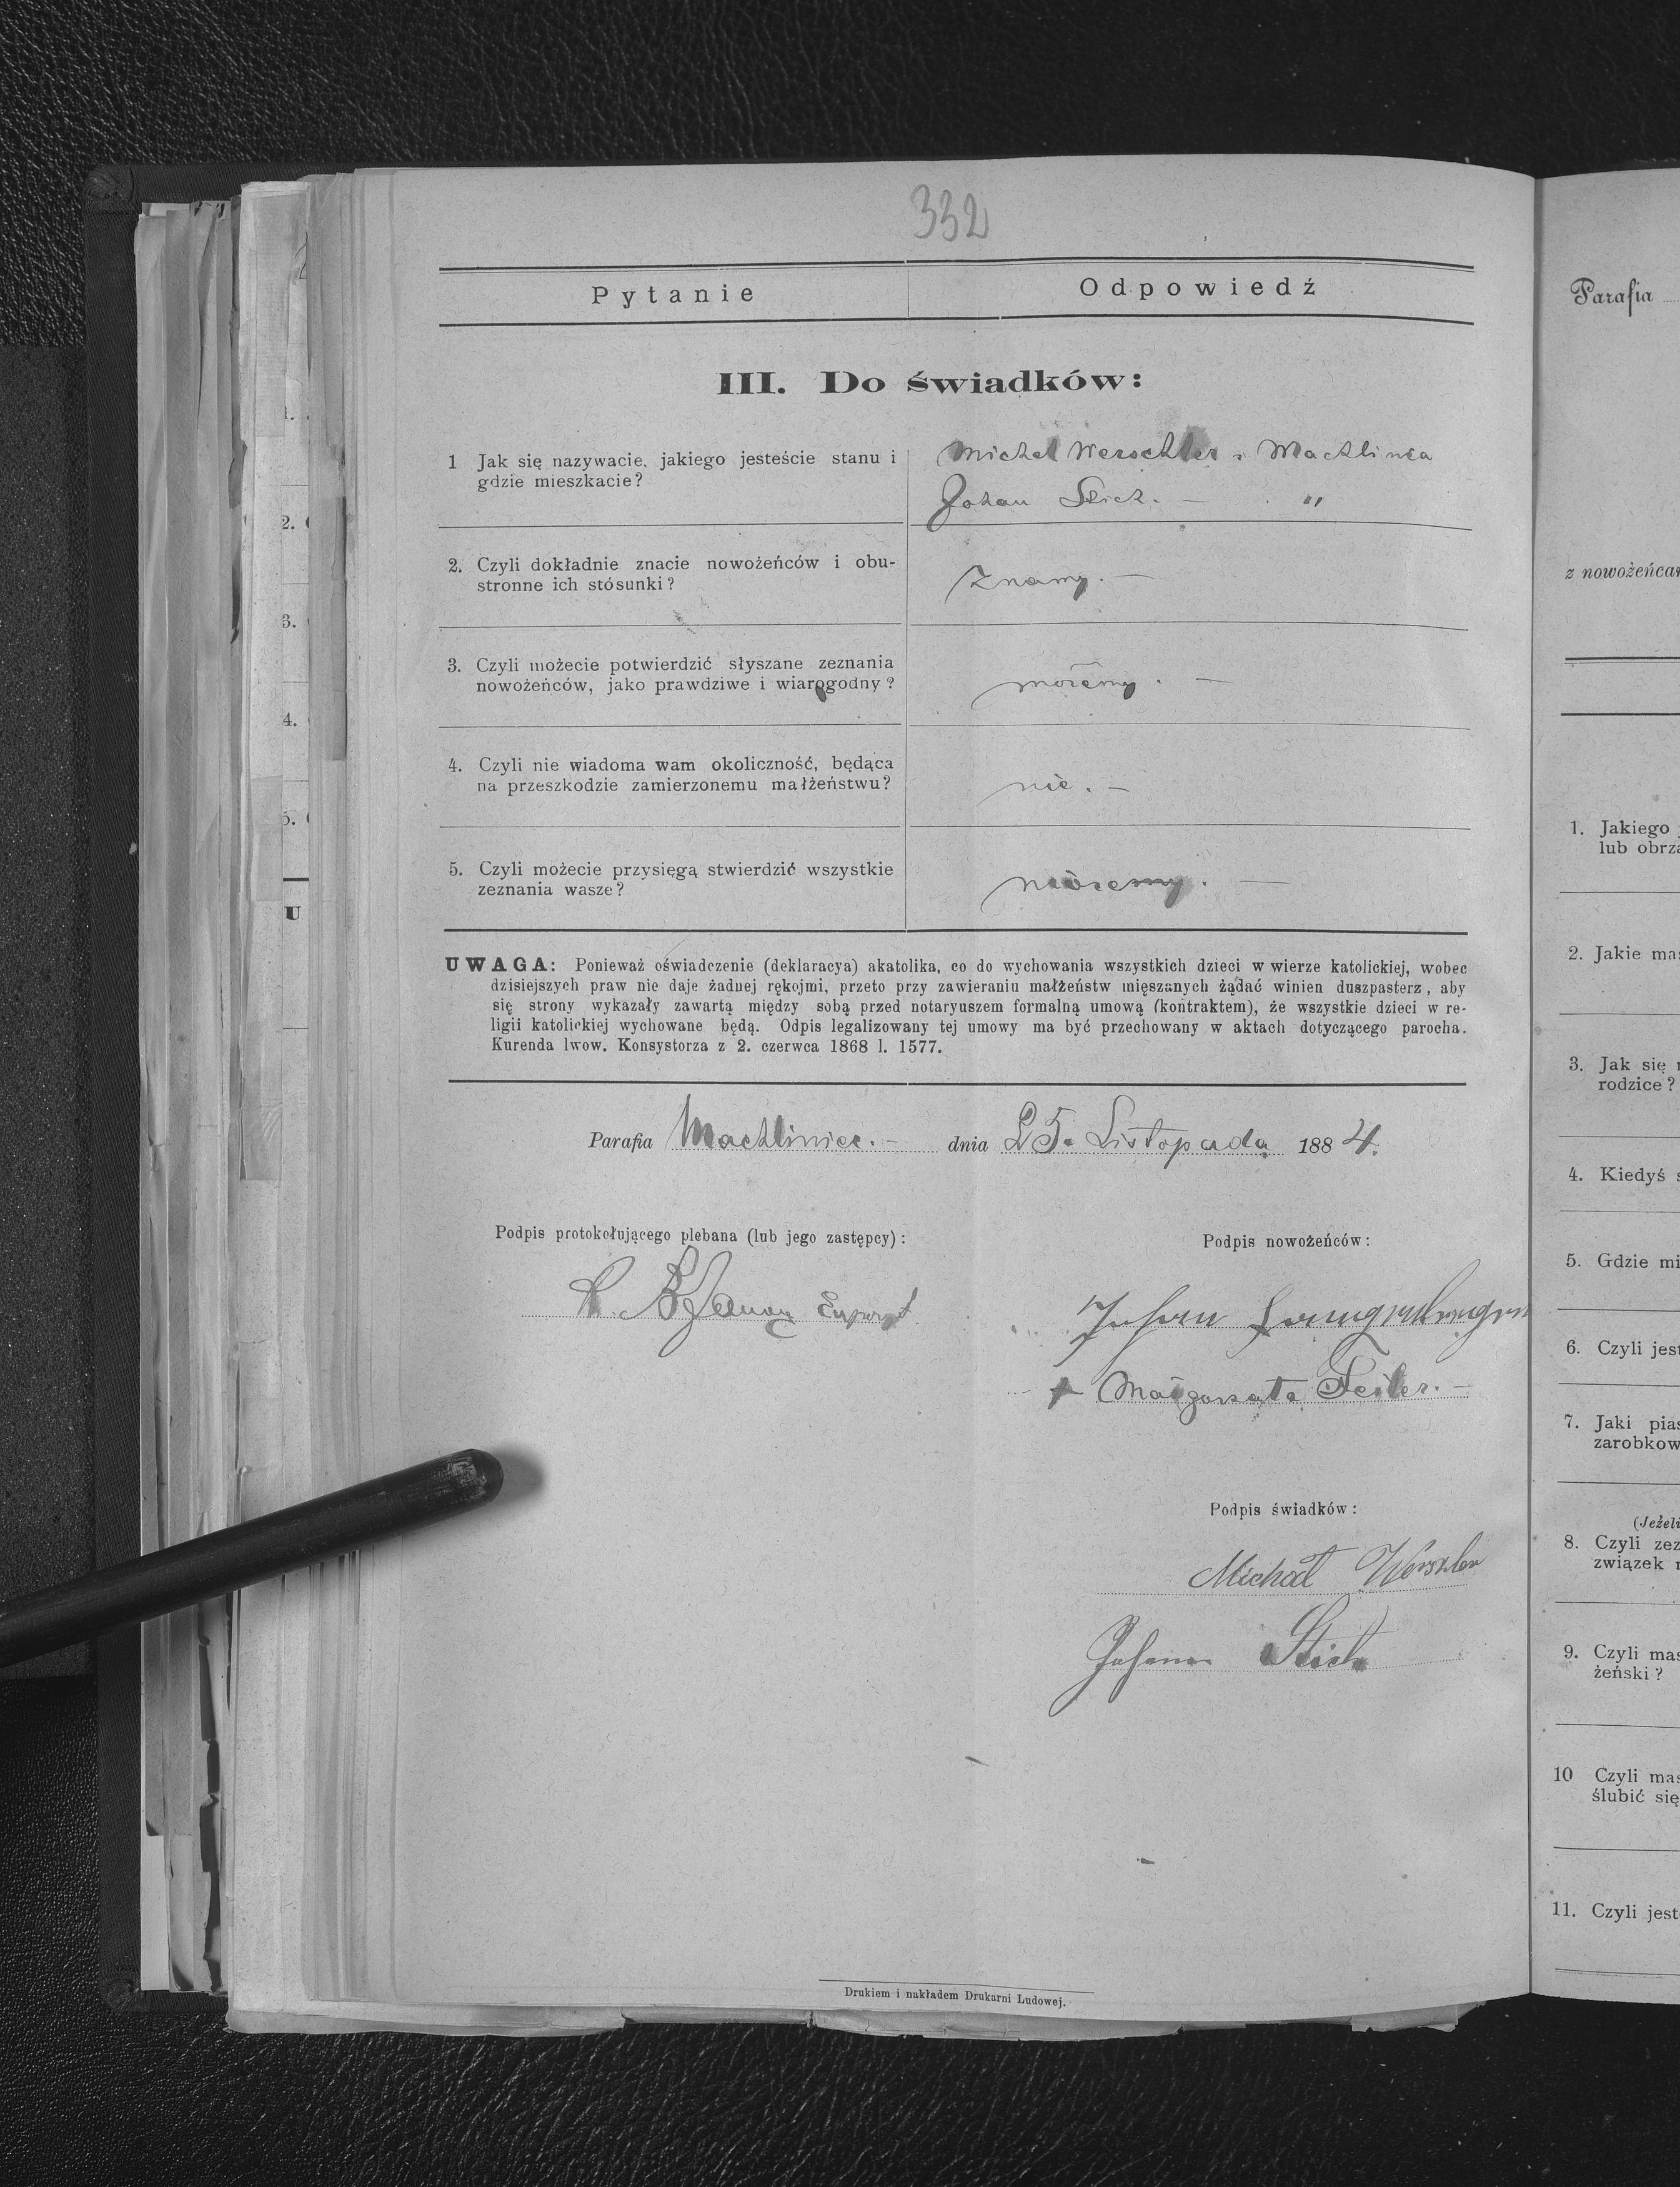 332
Pytanie
Odpowiedź
III. Do świadków:
1 Jak się nazywacie, jakiego jesteście stanu i
gdzie mieszkacie?
Michel Werschler z Machlińca
Johan Stich. — "
2. Czyli dokładnie znacie nowożeńców i obu-
stronne ich stósunki?
Znamy. —
3. Czyli możecie potwierdzić słyszane zeznania
nowożeńców, jako prawdziwe i wiarogodny?
możemy. —
4. Czyli nie wiadoma wam okoliczność, będąca
na przeszkodzie zamierzonemu małżeństwu?
nie. —
5. Czyli możecie przysięgą stwierdzić wszystkie
zeznania wasze?
możemy. —
UWAGA: Ponieważ oświadczenie (deklaracya) akatolika, co do wychowania wszystkich dzieci w wierze katolickiej, wobec
dzisiejszych praw nie daje żadnej rękojmi, przeto przy zawieraniu małżeństw mięszanych żądać winien duszpasterz, aby
się strony wykazały zawartą między sobą przed notaryuszem formalną umową (kontraktem), że wszystkie dzieci w re-
ligii katolickiej wychowane będą. Odpis legalizowany tej umowy ma być przechowany w aktach dotyczącego parocha.
Kurenda lwow. Konsystorza z 2. czerwca 1868 l. 1577.
Parafia Machliniec. — dnia 25. Listopada 1884.
Podpis protokołującego plebana (lub jego zastępcy):
Podpis nowożeńców:
Johann
+ Małgorzata Feiler. —
Podpis świadków:
Michał Werschler
Johann Stich
Drukiem i nakładem Drukarni Ludowej.
Parafia
z nowożeńcam
1. Jakiego
lub obrzą
2. Jakie mas
3. Jak się n
rodzice?
4. Kiedyś s
5. Gdzie mi
6. Czyli jest
7. Jaki pias
zarobkow
(Jeżeli
8. Czyli zez
związek m
9. Czyli mas
żeński?
10 Czyli mas
ślubić się
11. Czyli jest